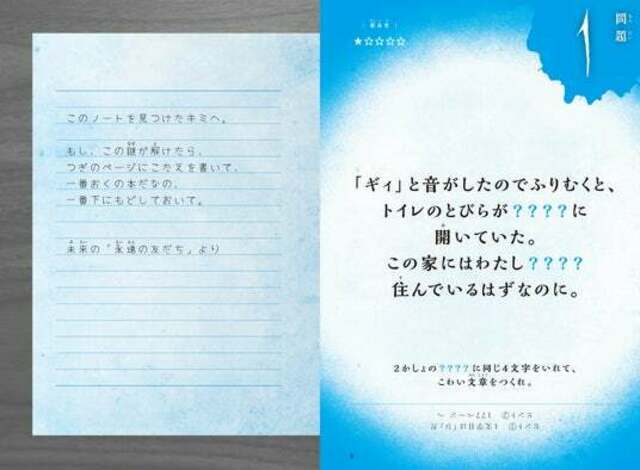 このノートを見つけたキミへ。
もし、この謎が解けたら、
つぎのページにこたえを書いて、
一番おくの本だなの、
一番下にもどしておいて。
未来の「永遠の友だち」より
難易度
★☆☆☆☆
問題
1
「ギィ」と音がしたのでふりむくと、
トイレのとびらが????に
開いていた。
この家にはわたし????
住んでいるはずなのに。
2かしょの????に同じ4文字をいれて、
こわい文章をつくれ。
ヒント①
ヒント②